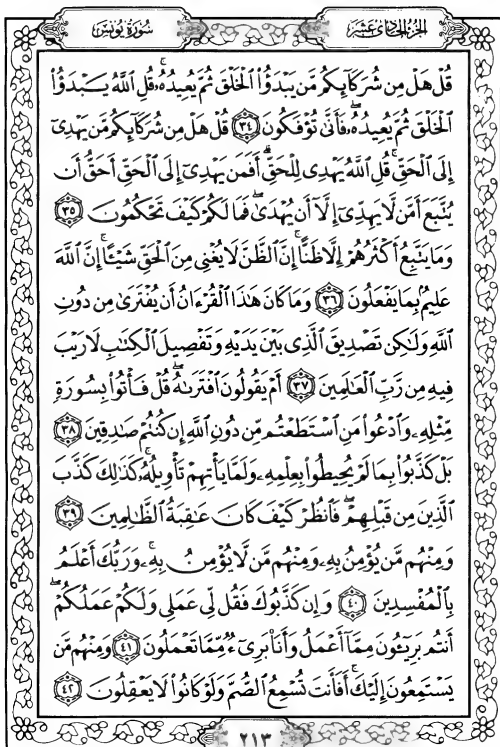 الجزء الحادى عشر
سورة يونس
قُلْ هَلْ مِن شُرَكَآئِكُم مَّن يَبْدَؤُا۟ ٱلْخَلْقَ ثُمَّ يُعِيدُهُۥ ۚ قُلِ ٱللَّهُ يَبْدَؤُا۟
ٱلْخَلْقَ ثُمَّ يُعِيدُهُۥ ۖ فَأَنَّىٰ تُؤْفَكُونَ ٣٤ قُلْ هَلْ مِن شُرَكَآئِكُم مَّن يَهْدِىٓ
إِلَى ٱلْحَقِّ ۚ قُلِ ٱللَّهُ يَهْدِى لِلْحَقِّ ۗ أَفَمَن يَهْدِىٓ إِلَى ٱلْحَقِّ أَحَقُّ أَن
يُتَّبَعَ أَمَّن لَّا يَهِدِّىٓ إِلَّآ أَن يُهْدَىٰ ۖ فَمَا لَكُمْ كَيْفَ تَحْكُمُونَ ٣٥
وَمَا يَتَّبِعُ أَكْثَرُهُمْ إِلَّا ظَنًّا ۚ إِنَّ ٱلظَّنَّ لَا يُغْنِى مِنَ ٱلْحَقِّ شَيْـًٔا ۚ إِنَّ ٱللَّهَ
عَلِيمٌۢ بِمَا يَفْعَلُونَ ٣٦ وَمَا كَانَ هَٰذَا ٱلْقُرْءَانُ أَن يُفْتَرَىٰ مِن دُونِ
ٱللَّهِ وَلَٰكِن تَصْدِيقَ ٱلَّذِى بَيْنَ يَدَيْهِ وَتَفْصِيلَ ٱلْكِتَٰبِ لَا رَيْبَ
فِيهِ مِن رَّبِّ ٱلْعَٰلَمِينَ ٣٧ أَمْ يَقُولُونَ ٱفْتَرَىٰهُ ۖ قُلْ فَأْتُوا۟ بِسُورَةٍ
مِّثْلِهِۦ وَٱدْعُوا۟ مَنِ ٱسْتَطَعْتُم مِّن دُونِ ٱللَّهِ إِن كُنتُمْ صَٰدِقِينَ ٣٨
بَلْ كَذَّبُوا۟ بِمَا لَمْ يُحِيطُوا۟ بِعِلْمِهِۦ وَلَمَّا يَأْتِهِمْ تَأْوِيلُهُۥ ۚ كَذَٰلِكَ كَذَّبَ
ٱلَّذِينَ مِن قَبْلِهِمْ ۖ فَٱنظُرْ كَيْفَ كَانَ عَٰقِبَةُ ٱلظَّٰلِمِينَ ٣٩
وَمِنْهُم مَّن يُؤْمِنُ بِهِۦ وَمِنْهُم مَّن لَّا يُؤْمِنُ بِهِۦ ۚ وَرَبُّكَ أَعْلَمُ
بِٱلْمُفْسِدِينَ ٤٠ وَإِن كَذَّبُوكَ فَقُل لِّى عَمَلِى وَلَكُمْ عَمَلُكُمْ ۖ
أَنتُم بَرِيٓـُٔونَ مِمَّآ أَعْمَلُ وَأَنَا۠ بَرِىٓءٌ مِّمَّا تَعْمَلُونَ ٤١ وَمِنْهُم مَّن
يَسْتَمِعُونَ إِلَيْكَ ۚ أَفَأَنتَ تُسْمِعُ ٱلصُّمَّ وَلَوْ كَانُوا۟ لَا يَعْقِلُونَ ٤٢
٢١٣